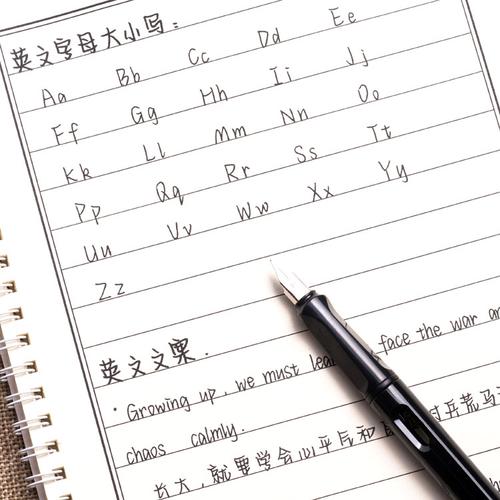 英文字母大小写:
Aa Bb Cc Dd Ee
Ff Gg Hh Ii Jj
Kk Ll Mm Nn Oo
Pp Qq Rr Ss Tt
Uu Vv Ww Xx Yy
Zz
英文文案.
· Growing up, we must face the war
chaos calmly.
长大,就要学会心平气和 对兵荒马